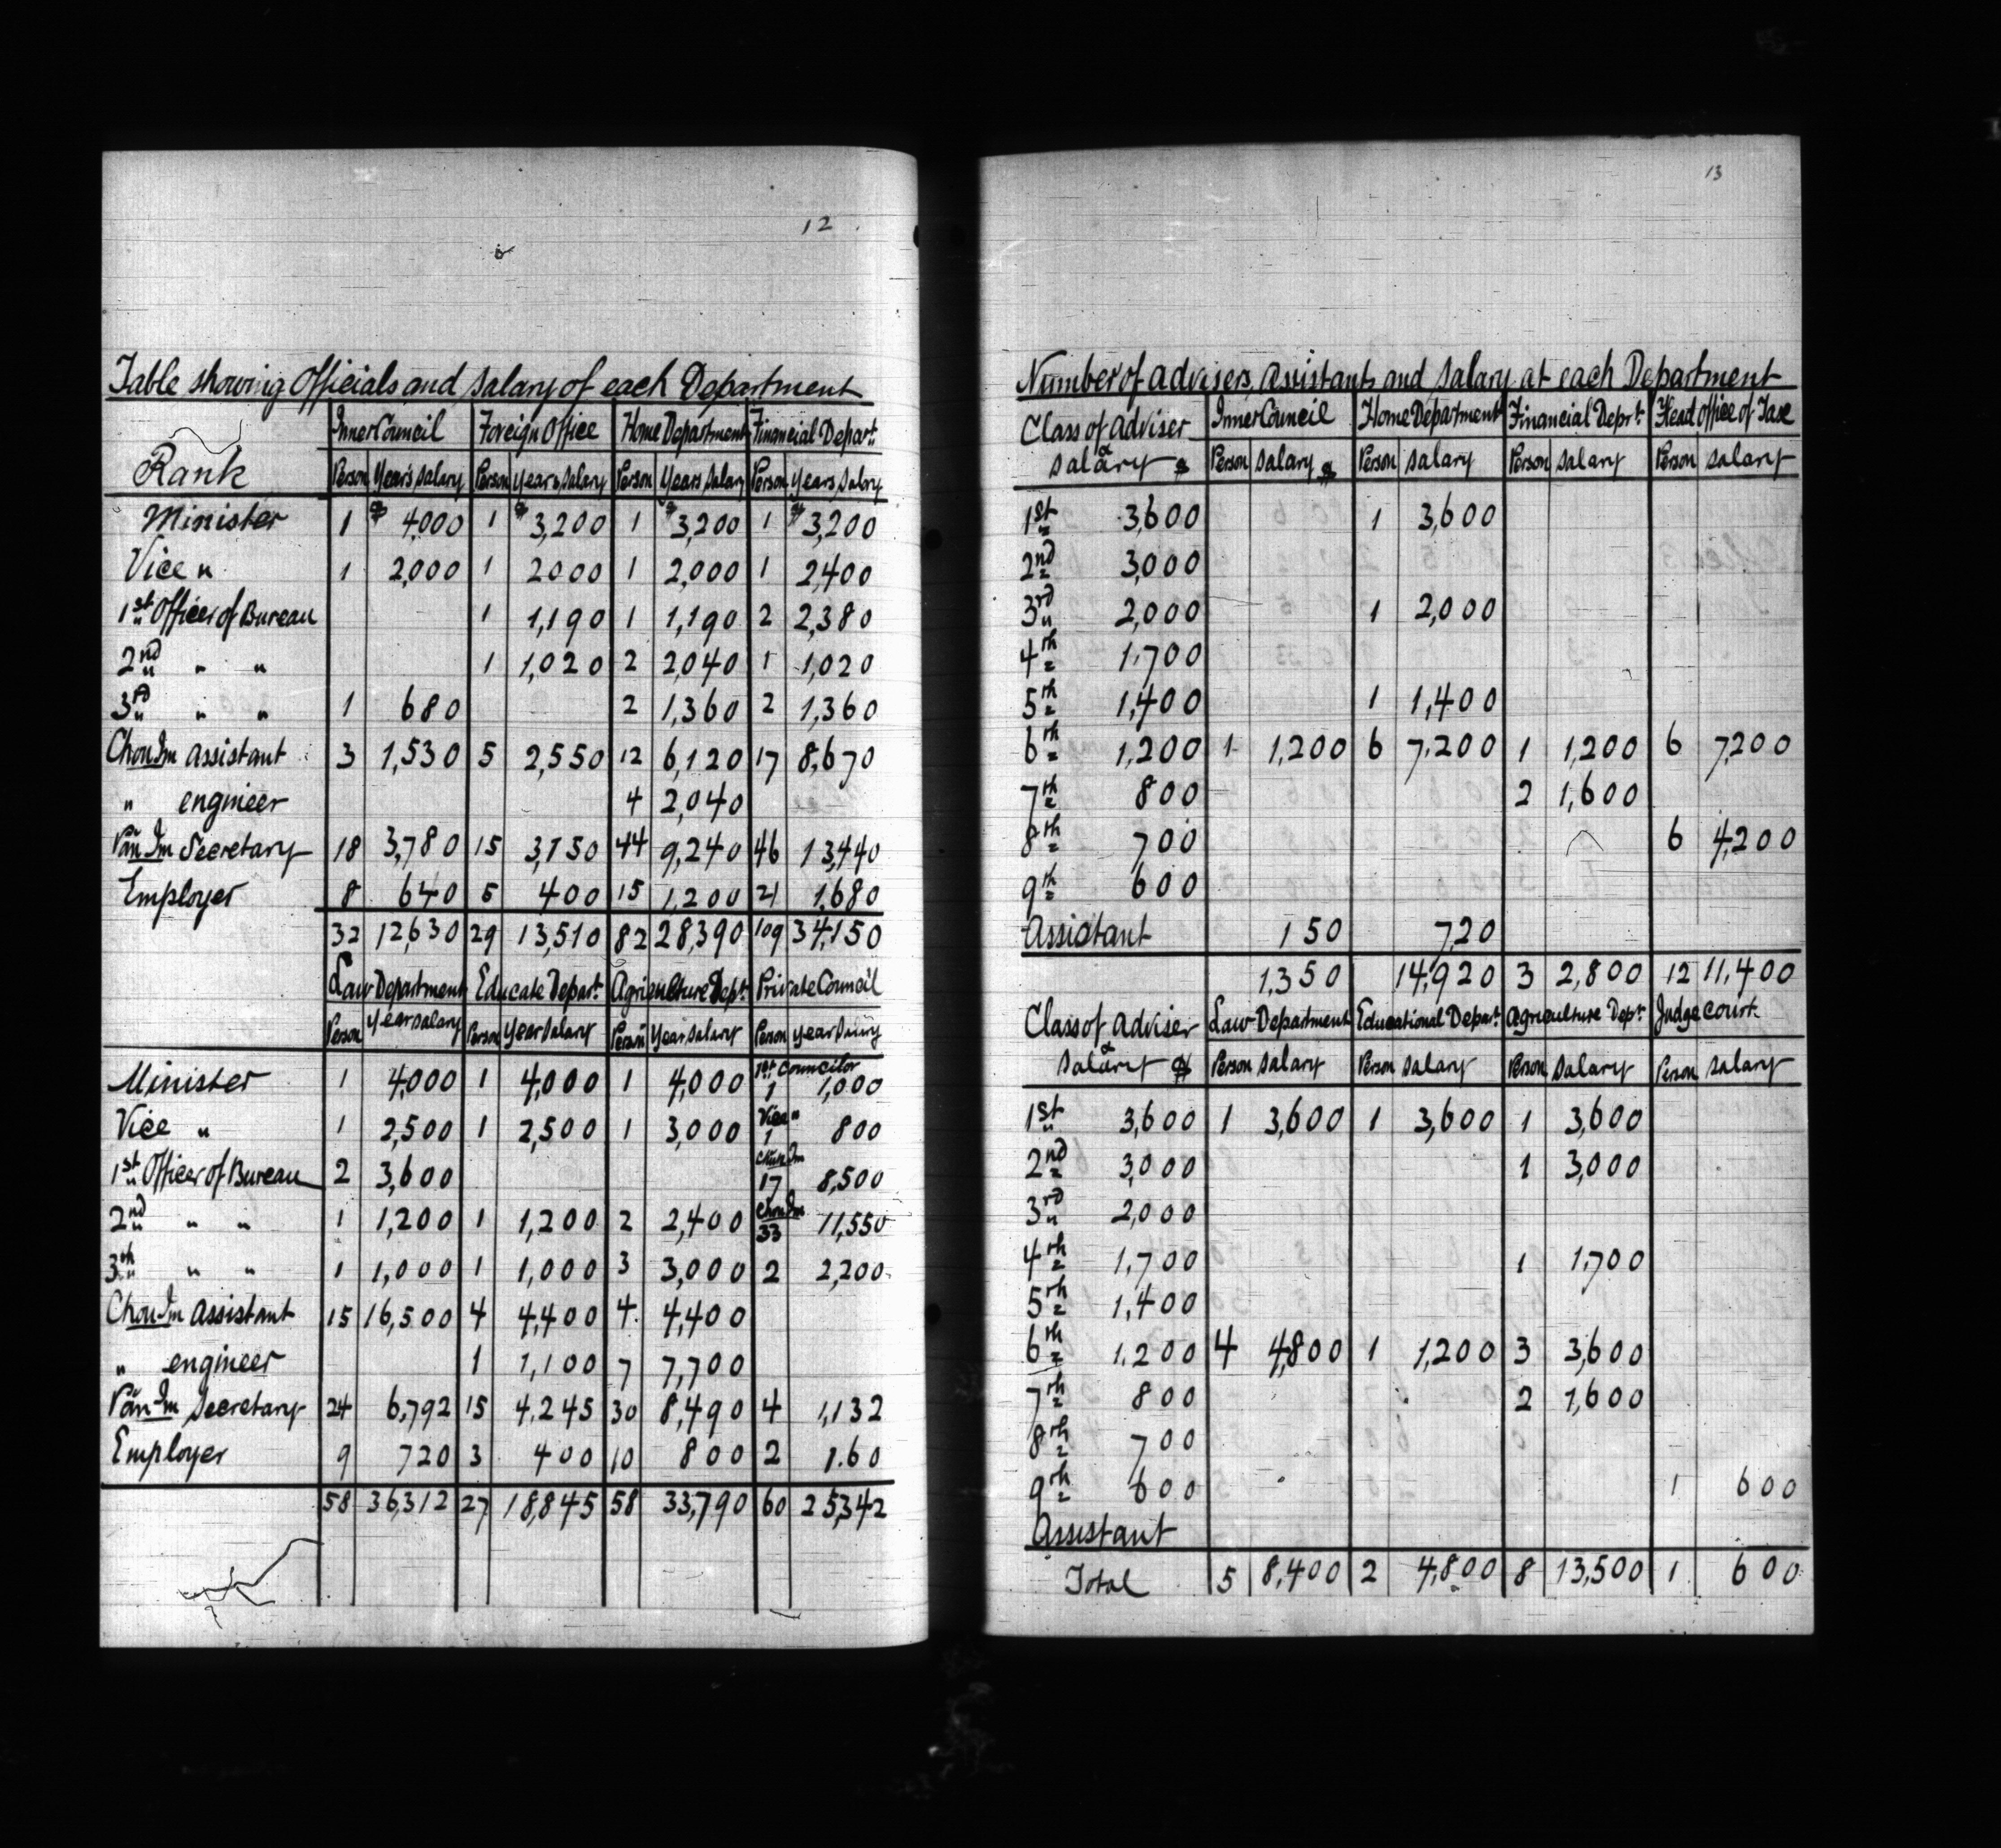 12
Table showing Officials and Salary of each Department
Rank Inner Council Foreign Office Home Department Financial Depart.
Person Year's Salary Person Year's Salary Person Years Salary Person Years Salary
Minister 1 $ 4,000 1 $ 3,200 1 $ 3,200 1 $ 3,200
Vice " 1 2,000 1 2000 1 2,000 1 2,400
1st Officer of Bureau 1 1,190 1 1,190 2 2,380
2nd " " 1 1,020 2 2,040 1 1,020
3rd " " 1 680 2 1,360 2 1,360
Chou Im Assistant 3 1,530 5 2,550 12 6,120 17 8,670
" engineer 4 2,040
Pan Im Secretary 18 3,780 15 3,150 44 9,240 46 13,440
Employer 8 640 5 400 15 1,200 21 1,680
32 12,630 29 13,510 82 28,390 109 34,150
Law Department Educate Depart. Agriculture Dept. Private Council
Person Year Salary Person Year Salary Person Year Salary Person Year Salary
Minister 1 4,000 1 4,000 1 4,000 1st Councilor 1 1,000
Vice " 1 2,500 1 2,500 1 3,000 Vice " 1 800
1st Officer of Bureau 2 3,600 17 8,500
2nd " " 1 1,200 1 1,200 2 2,400 Chou Im 33 11,550
3th " " 1 1,000 1 1,000 3 3,000 2 2,200
Chou Im Assistant 15 16,500 4 4,400 4 4,400
" engineer 1 1,100 7 7,700
Pan Im Secretary 24 6,792 15 4,245 30 8,490 4 1,132
Employer 9 720 3 400 10 800 2 1.60
58 36,312 27 18,845 58 33,790 60 25,342
13
Number of advisers, assistants and Salary at each Department
Class of adviser & Salary $ Inner Council Home Department Financial Deprt. Head Office of Taxe
Person Salary $ Person Salary Person Salary Person Salary
1st 3,600 1 3,600
2nd 3,000
3rd 2,000 1 2,000
4th 1,700
5th 1,400 1 1,400
6th 1,200 1 1,200 6 7,200 1 1,200 6 7,200
7th 800 2 1,600
8th 700 6 4,200
9th 600
Assistant 150 720
1,350 14,920 3 2,800 12 11,400
Class of Adviser & Salary $ Law Department Educational Depart. Agriculture Dept. Judge Court
Person Salary Person Salary Person Salary Person Salary
1st 3,600 1 3,600 1 3,600 1 3,600
2nd 3,000 1 3,000
3rd 2,000
4th 1,700 1 1,700
5th 1,400
6th 1,200 4 4,800 1 1,200 3 3,600
7th 800 2 1,600
8th 700
9th 600 1 600
Assistant
Total 5 8,400 2 4,800 8 13,500 1 600